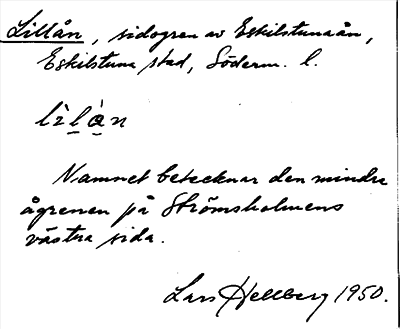 Lillån, sidogren av Eskilstunaån,
Eskilstuna stad, Söderm. l.
lìlå̀n
Namnet betecknar den mindre
ågrenen på Strömsholmens
västra sida.
Lars Hellberg 1950.